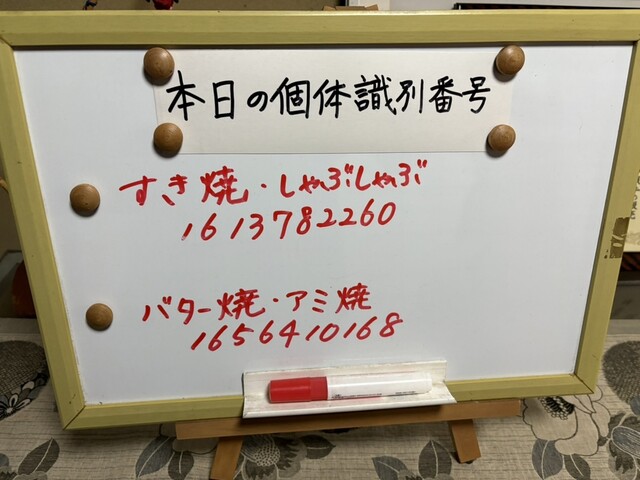 本日の個体識別番号
すき焼・しゃぶしゃぶ
1613782260
バター焼・アミ焼
1656410168